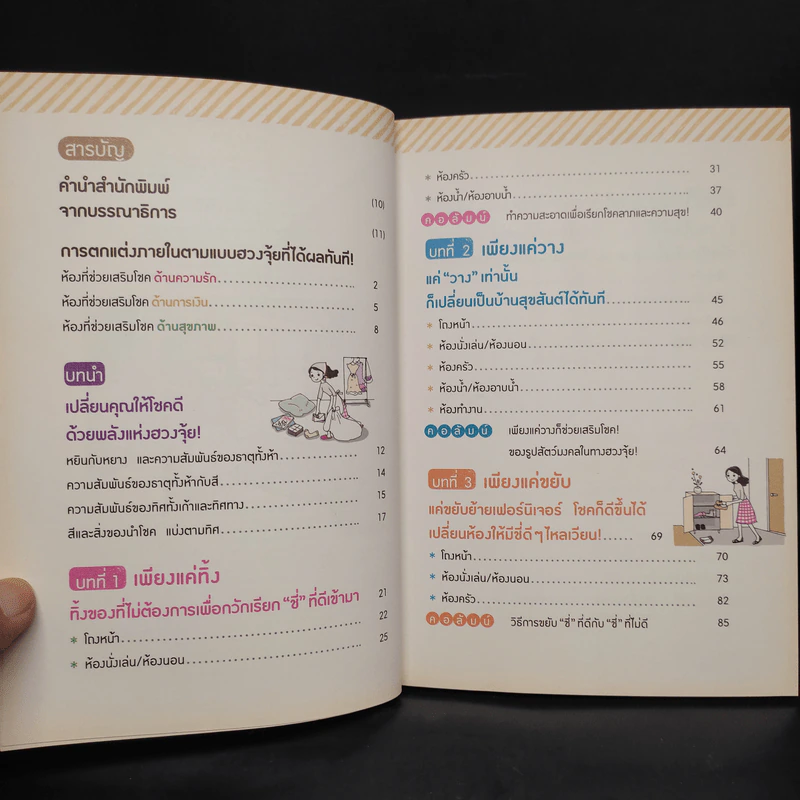 สารบัญ
คำนำสำนักพิมพ์ (10)
จากบรรณาธิการ (11)
การตกแต่งภายในตามแบบฮวงจุ้ยที่ได้ผลทันที!
ห้องที่ช่วยเสริมโชค ด้านความรัก 2
ห้องที่ช่วยเสริมโชค ด้านการเงิน 5
ห้องที่ช่วยเสริมโชค ด้านสุขภาพ 8
บทนำ
เปลี่ยนคุณให้โชคดี
ด้วยพลังแห่งฮวงจุ้ย!
หยินกับหยาง และความสัมพันธ์ของธาตุทั้งห้า 12
ความสัมพันธ์ของธาตุทั้งห้ากับสี 14
ความสัมพันธ์ของทิศทั้งเก้าและทิศทาง 15
สีและสิ่งของนำโชค แบ่งตามทิศ 17
บทที่ 1 เพียงแค่ทิ้ง
ทิ้งของที่ไม่ต้องการเพื่อกวักเรียก “ชี่” ที่ดีเข้ามา 21
* โถงหน้า 22
* ห้องนั่งเล่น/ห้องนอน 25
* ห้องครัว 31
* ห้องน้ำ/ห้องอาบน้ำ 37
คอลัมน์ ทำความสะอาดเพื่อเรียกโชคลาภและความสุข! 40
บทที่ 2 เพียงแค่วาง
แค่ “วาง” เท่านั้น
ก็เปลี่ยนเป็นบ้านสุขสันต์ได้ทันที 45
* โถงหน้า 46
* ห้องนั่งเล่น/ห้องนอน 52
* ห้องครัว 55
* ห้องน้ำ/ห้องอาบน้ำ 58
* ห้องทำงาน 61
คอลัมน์ เพียงแค่วางก็ช่วยเสริมโชค!
ของรูปสัตว์มงคลในทางฮวงจุ้ย! 64
บทที่ 3 เพียงแค่ขยับ
แค่ขยับย้ายเฟอร์นิเจอร์ โชคก็ดีขึ้นได้
เปลี่ยนห้องให้มีชี่ดีๆ ไหลเวียน! 69
* โถงหน้า 70
* ห้องนั่งเล่น/ห้องนอน 73
* ห้องครัว 82
คอลัมน์ วิธีการขยับ “ชี่” ที่ดีกับ “ชี่” ที่ไม่ดี 85